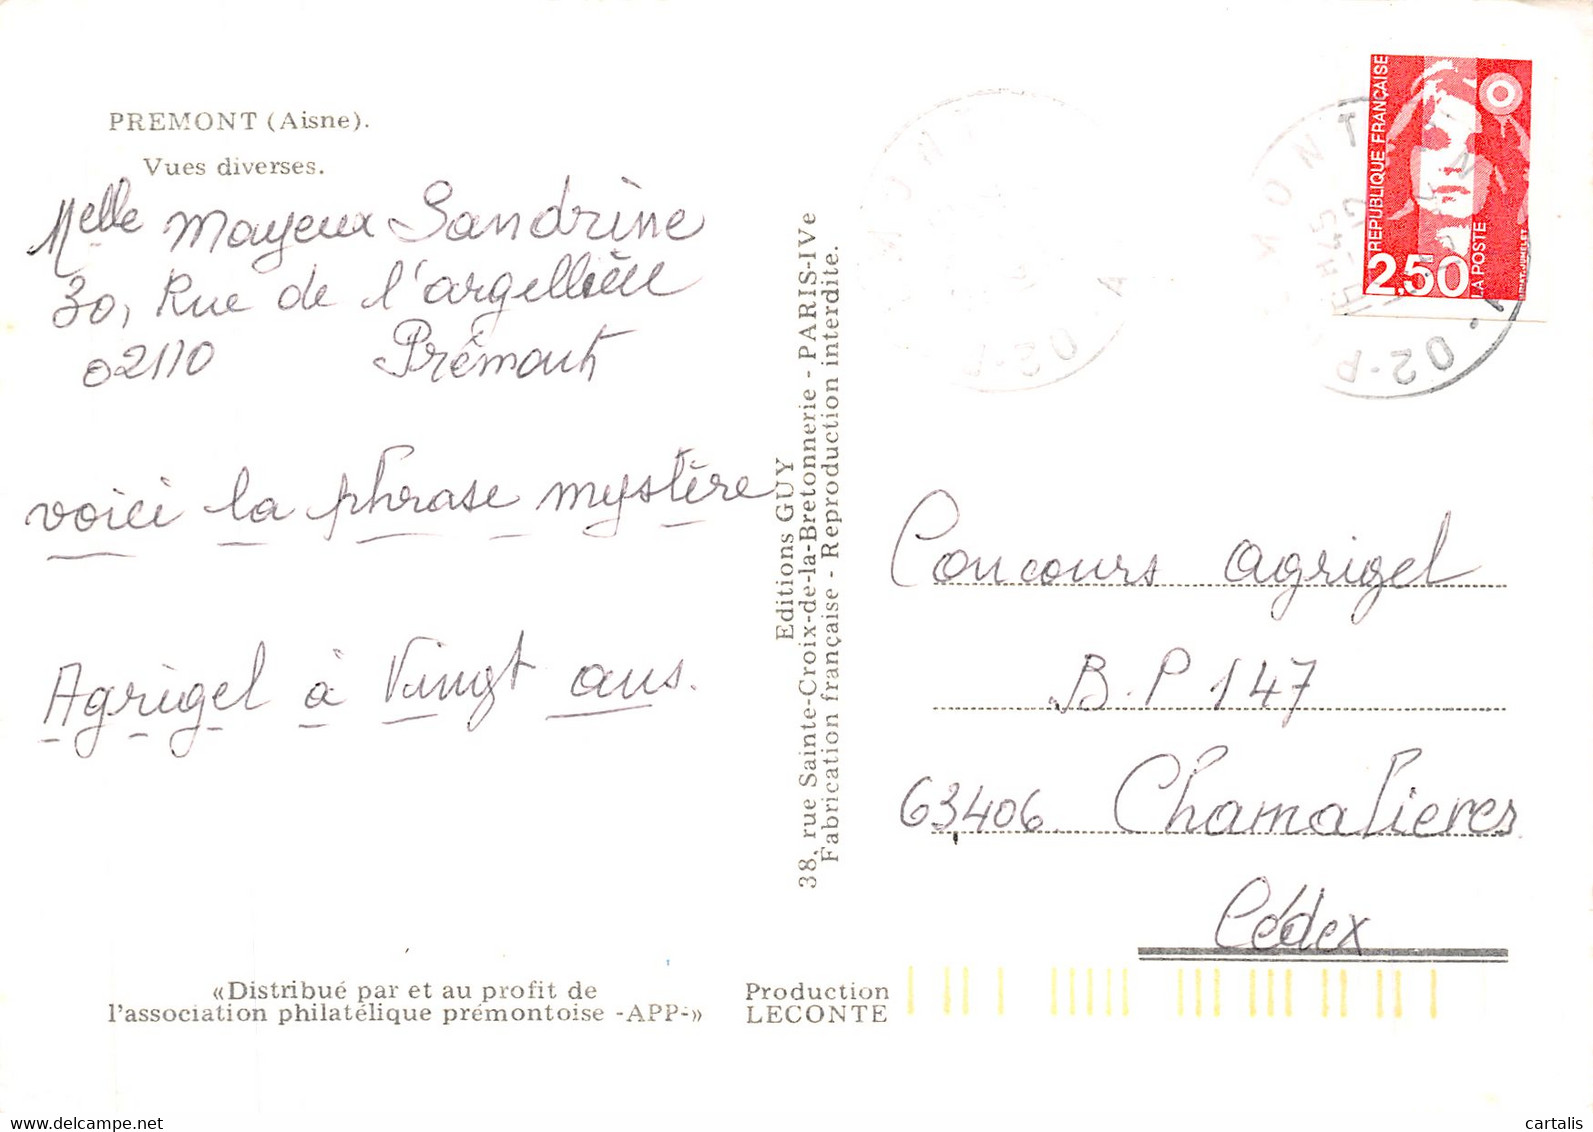 PREMONT (Aisne).
Vues diverses.
Melle Mayeux Sandrine
30, Rue de l'argellière
02110 Prémont
voici la phrase mystère
Agrigel à Vingt ans.
«Distribué par et au profit de
l'association philatélique prémontoise -APP-»
Editions GUY
38, rue Sainte-Croix-de-la-Bretonnerie - PARIS-IVe
Fabrication française - Reproduction interdite.
Production
LECONTE
REPUBLIQUE FRANÇAISE
2,50
LA POSTE
Concours Agrigel
B.P 147
63406 Chamalieres
Cédex
cartalis